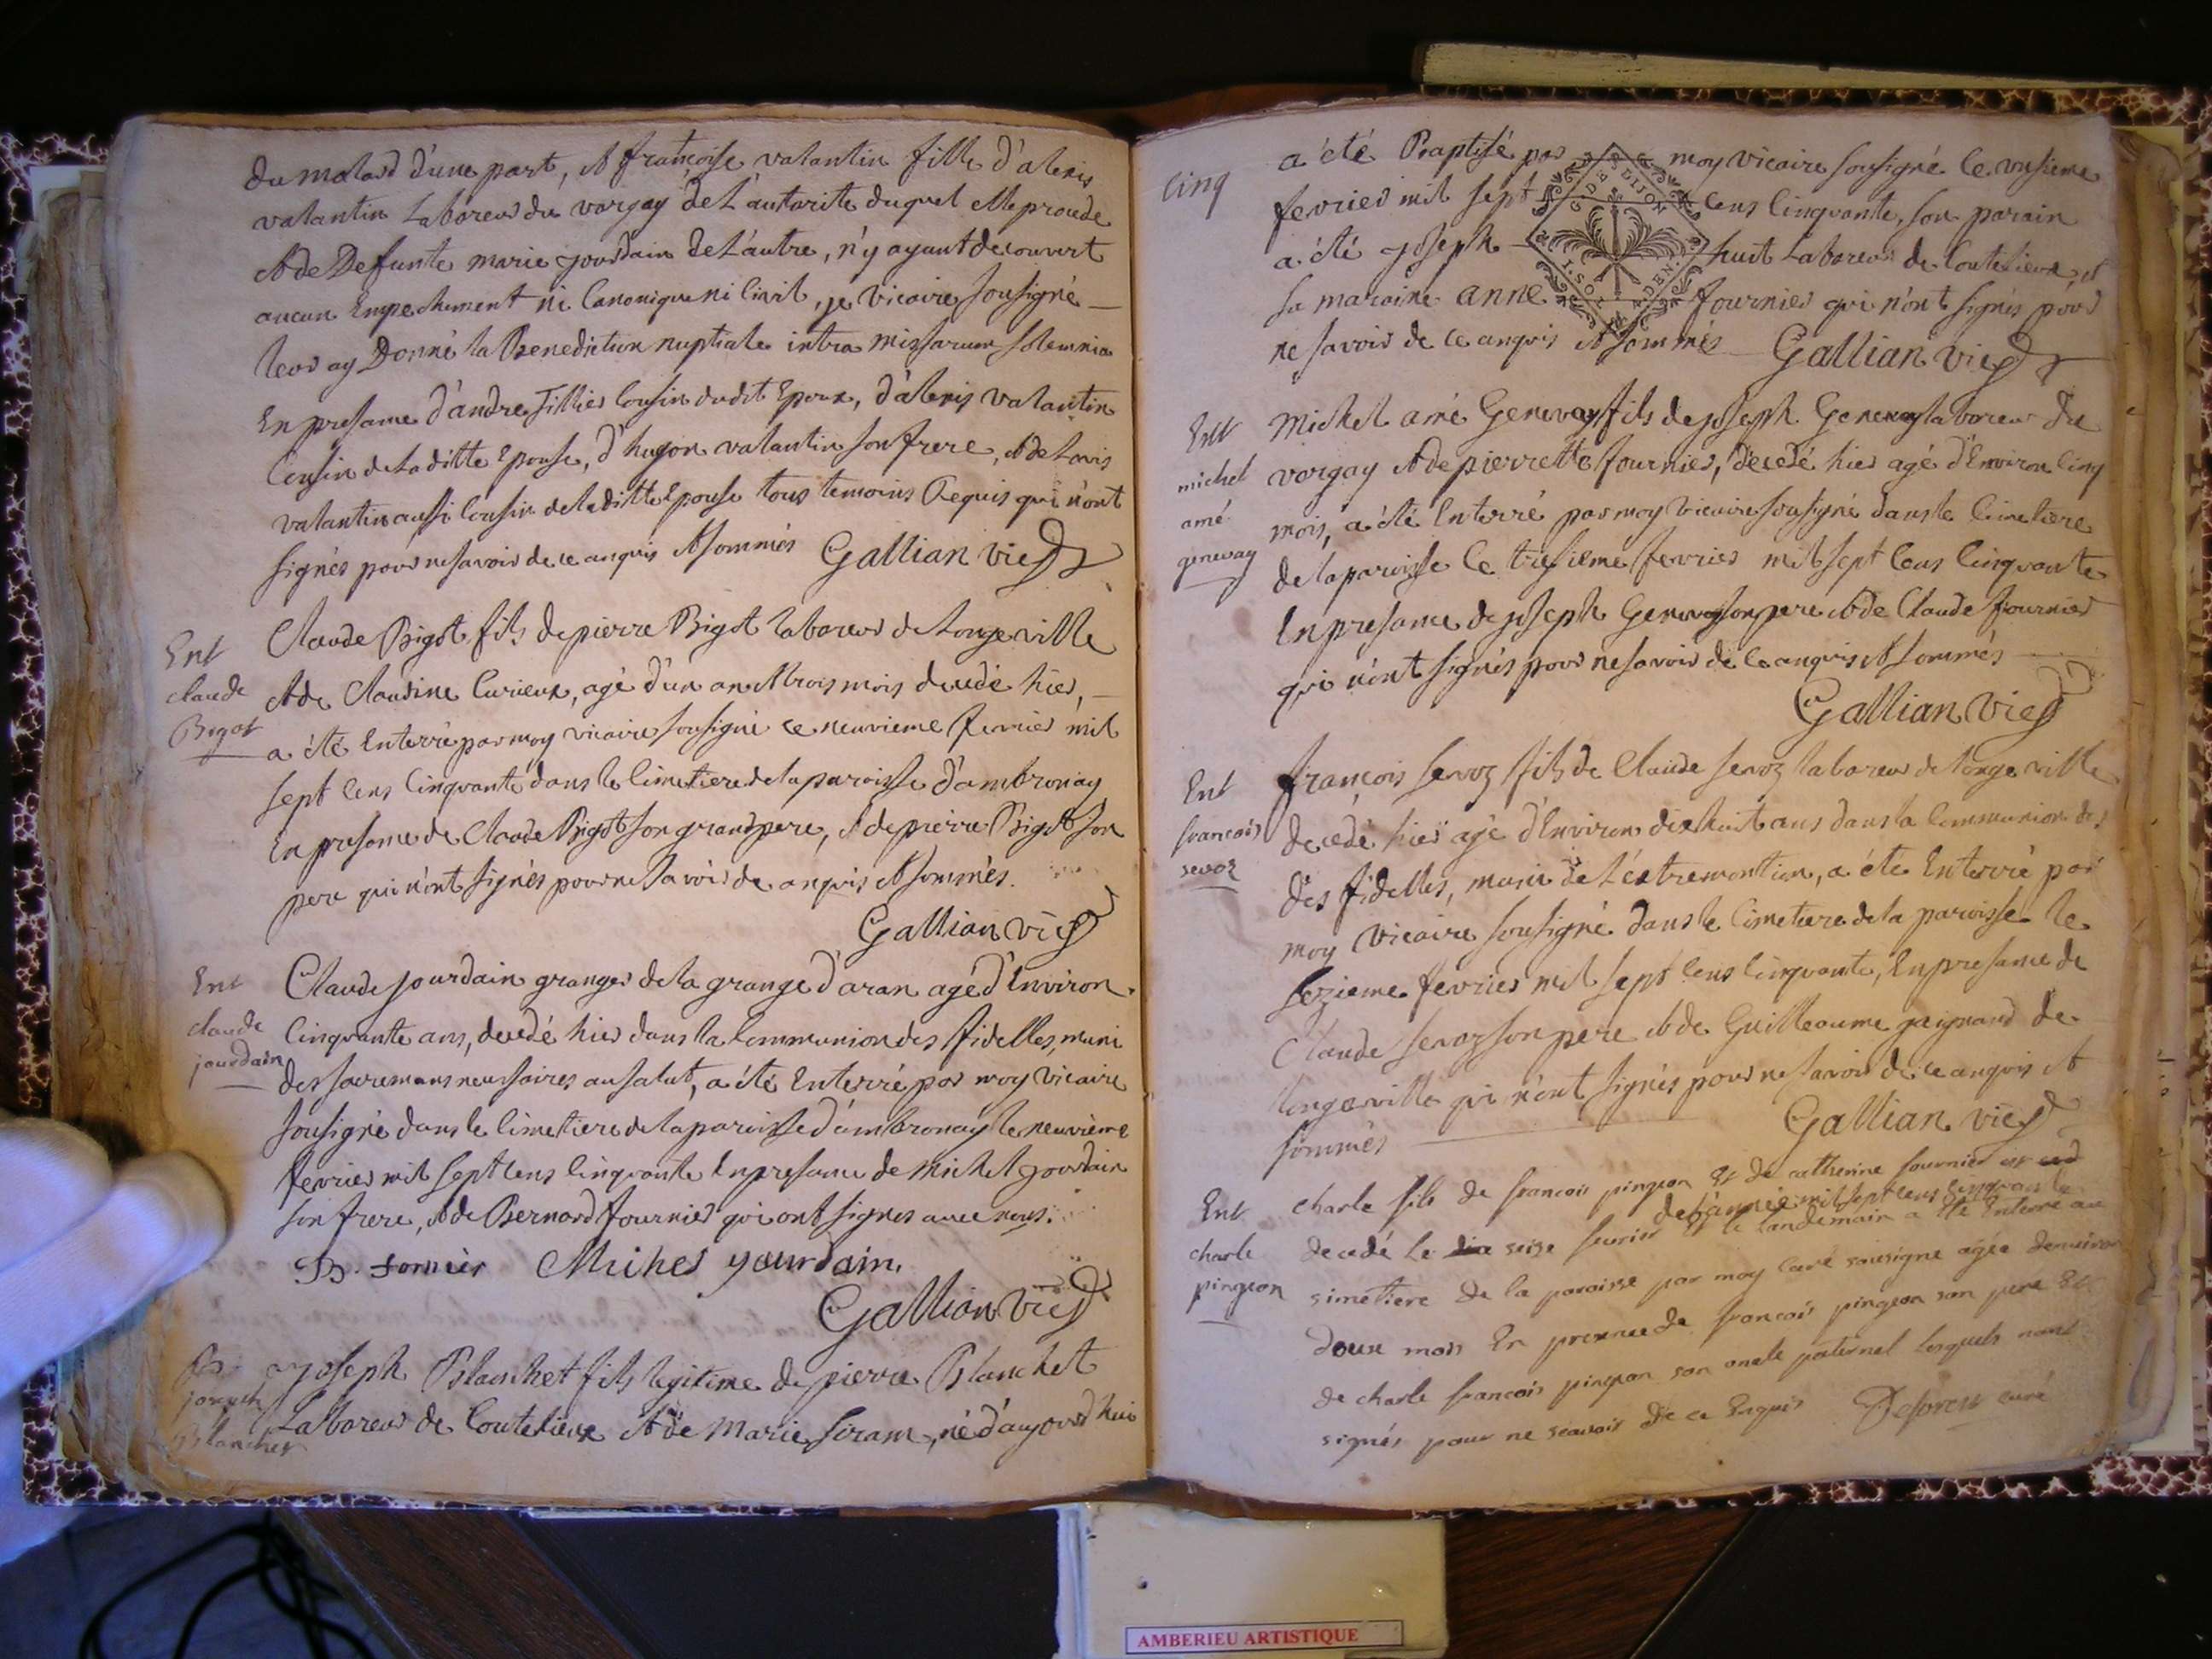 du molard d'une part, et françoise valantin fille d'alexis
valantin Laboreur du vorgay de L'autorite duquel elle procede
et de Defunte marie jourdain de L'autre, n'y ayant decouvert
aucun Empechement ni Canonique ni Civil, je vicaire sousigné
leur ay Donné la Benediction nuptiale intra missarum solemnia
En presance d'andre Tillier Cousin dudit Epoux, d'alexis valantin
Cousin de la ditte Epouse, d'hugon valantin son frere, et de Louis
valantin aussi Cousin de la ditte Epouse tous temoins Requis qui n'ont
signés pour ne savoir de ce anquis et sommés Gallian vic
Ent
claude
Bigot
Claude Bigot fils de pierre Bigot laboreur de Longeville
et de Claudine Curieux, agé d'un an et trois mois decedé hier,
a été Enterré par moy vicaire sousigné ce neuvieme fevrier mil
sept Cens Cinquante dans le Cimetiere de la paroisse d'ambronay
En presance de Claude Bigot son grand pere, et de pierre Bigot son
pere qui n'ont signés pour ne savoir de anquis et sommés.
Gallian vic
Ent
claude
jourdain
Claude jourdain granger de la grange d'aran agé d'Environ
Cinquante ans, decedé hier dans la Communion des fidelles, muni
des sacremans necessaires au salut, a été Enterré par moy vicaire
sousigné dans le Cimetiere de la paroisse d'ambronay le neuvieme
fevrier mil sept Cens Cinquante En presance de michel jourdain
son frere, et de Bernard fournier qui ont signes avec nous.
B. fornier Miches yourdain
Gallian vic
B
joseph
Blanchet
joseph Blanchet fils legitime de pierre Blanchet
Laboreur de Coutelieux et de Marie, né d'aujourd'hui
cinq
a été Baptisé par moy vicaire sousigné le unsieme
fevrier mil sept Cens Cinquante, son parain
a été joseph huit Laboreur de Coutelieux et
sa maraine anne fournier qui n'ont signés pour
ne savoir de ce anquis et sommés Gallian vic
G DE DIJON
Ent
michel
amé
genevay
Michel amé Genevay fils de joseph Genevay laboreur du
vorgay et de pierrette fournier, decedé hier agé d'Environ Cinq
mois, a été Enterré par moy vicaire sousigné dans le Cimetiere
de la paroisse le tresieme fevrier mil sept Cens Cinquante
En presance de joseph Genevay son pere et de Claude fournier
qui n'ont signés pour ne savoir de ce anquis et sommés
Gallian vic
Ent
francois
sevoz
françois sevoz fils de Claude sevoz laboreur de longeville
decedé hier agé d'Environ dix huit ans dans la Communion des
des fidelles, muni de L'extremontion, a été Enterré par
moy vicaire sousigné dans le Cimetiere de la paroisse le
sezieme fevrier mil sept Cens Cinquante, En presance de
Claude sevoz son pere et de Guilleaume de
longeville qui n'ont signés pour ne savoir de ce anquis et
sommés Gallian vic
Ent
charle
pingeon
charle fils de francois pingeon Et de catherine fournier
de l'année mil sept cens cinquante
decedé le seise feurier Et le landemain a été Enterré au
simetiere de la paroisse par moy curé sousigné agée denviron
doux mois En presence de francois pingeon son pere Et
de charle francois pingeon son oncle paternel lesquels nont
signés pour ne scavoir de ce Enquis curé
AMBERIEU ARTISTIQUE